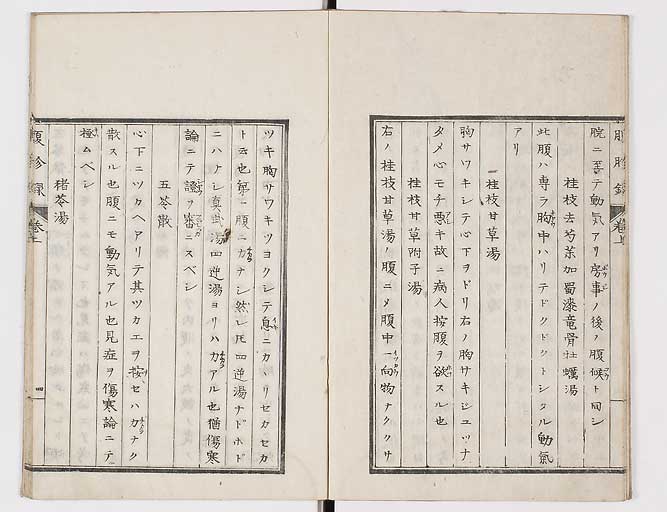 脘ニ至テ動気アリ房事ノ後ノ腹候ト同シ
桂枝去芍茶加蜀漆竜骨牡蠣湯
此腹ハ専ラ胸中ハリテドクドクトシタル動氣
アリ
桂枝甘草湯
胸サワキシテ心下ヲドリ右ノ胸サキジユツナ
タメ心モチ悪キ故ニ病人按腹ヲ欲スル也
桂枝甘草附子湯
右ノ桂枝甘草湯ノ腹ニメ腹中一向物ナククサ
ツキ胸サワキツヨクシテ息ニカヽリセカセカ
ト云也第一腹ニカナシ然レ𪜈四逆湯ナドホド
ニハナシ真武湯四逆湯ヨリハカアル也猶傷寒
論ニテ證ヲ審ニスベシ
五苓散
心下ニツカヘアリテ其ツカエヲ按セハカナク
散スル也腹ニモ動気アル也見症ヲ傷寒論ニテ
極ムベシ
猪苓湯
腹診録 巻上
四